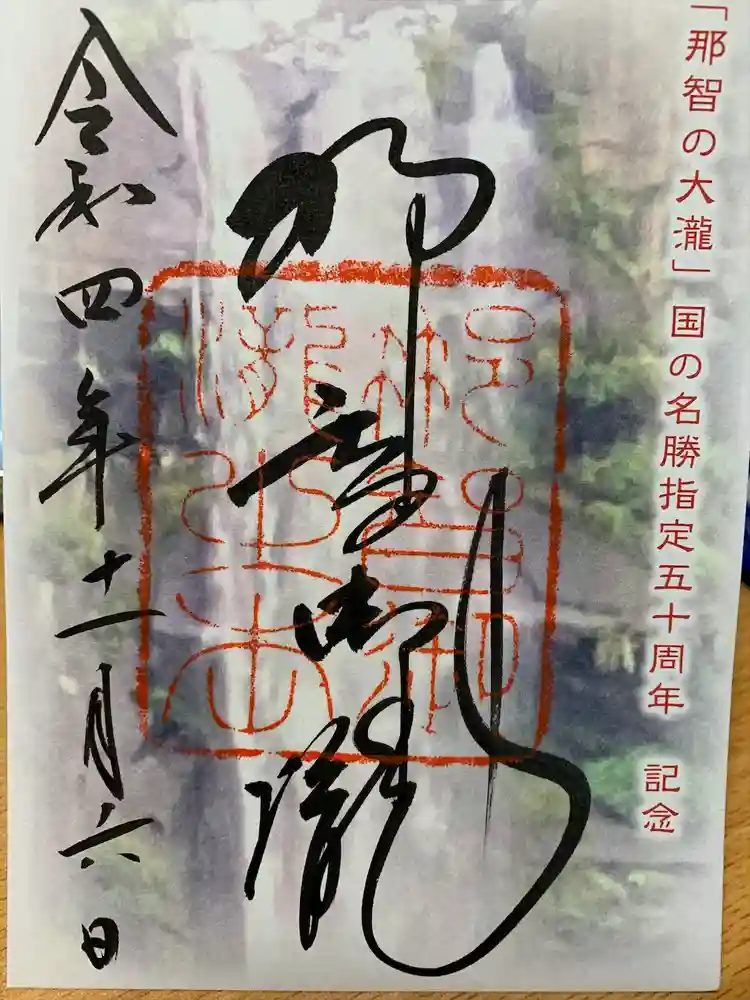 「那智の大瀧」国の名勝指定五十周年　記念
那智御瀧
令和四年十一月六日